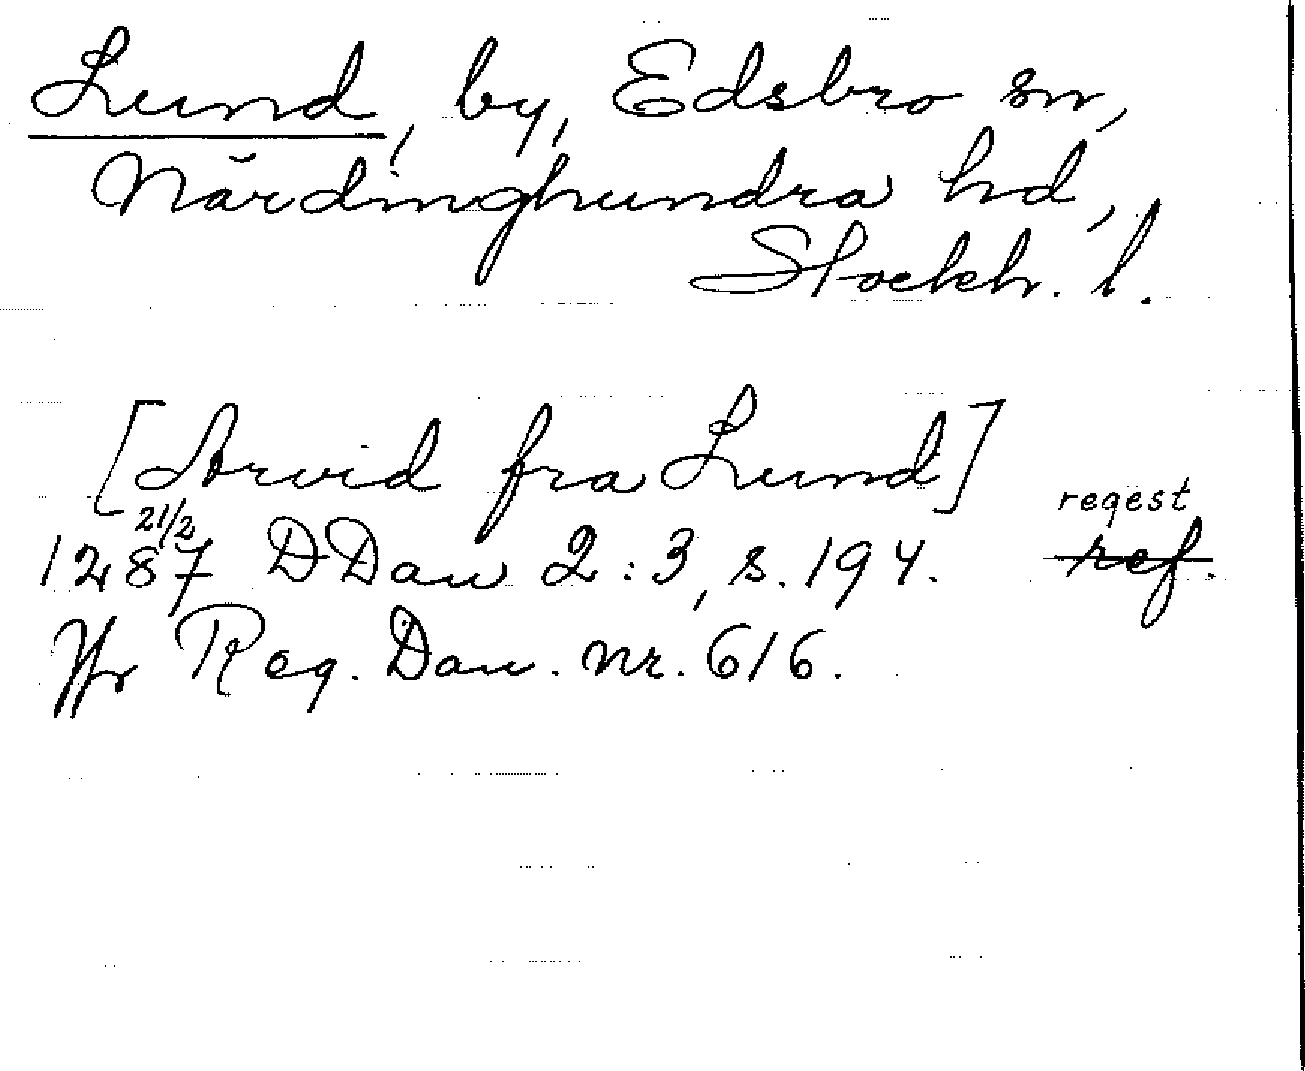 Lund, by, Edsbro sn,
Närdinghundra hd,
Stockh. l.
[Arvid fra Lund]
regest
21/2
1287 DDan 2:3, s. 194. ref.
Jfr Reg. Dan. nr. 616.